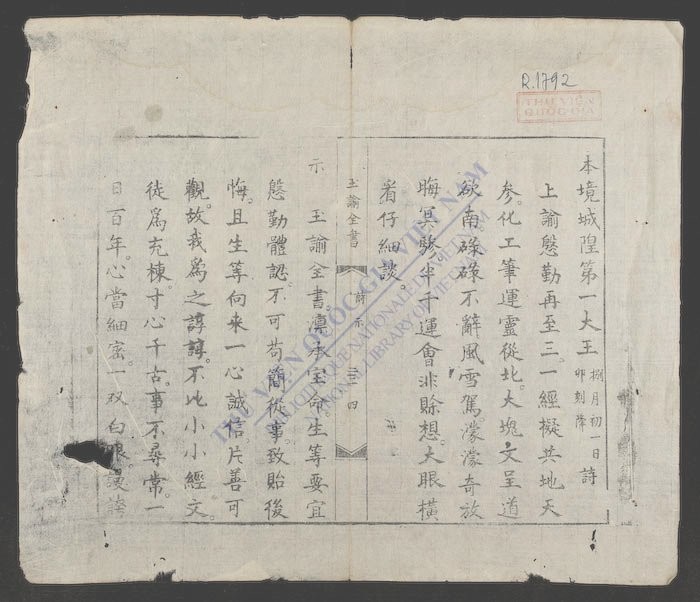 R.1792
THƯ VIỆN
QUỐC GIA
本境城隍第一大王 捌月初一日卯刻降 詩
上諭慇勤再至三。一經擬共地天
參。化工筆運靈從北。大塊文呈道
欲南。碌碌不辭風雪駕。濛濛奇放
晦冥驂。半千運會非賒想。大眼橫
看仔細談。
玉諭全書 附示 三四
示 玉諭全書。凜承宝命。生等要宜
慇勤體認。不可苟簡從事。致貽後
悔。且生等向来一心誠信。片善可
觀。故我爲之諄諄。不比小小經文。
徒爲充棟。寸心千古。事不尋常。一
日百年。心當細密。一双白眼。
THƯ VIỆN QUỐC GIA VIỆT NAM
BIBLIOTHÈQUE NATIONALE DU VIETNAM
NATIONAL LIBRARY OF VIETNAM